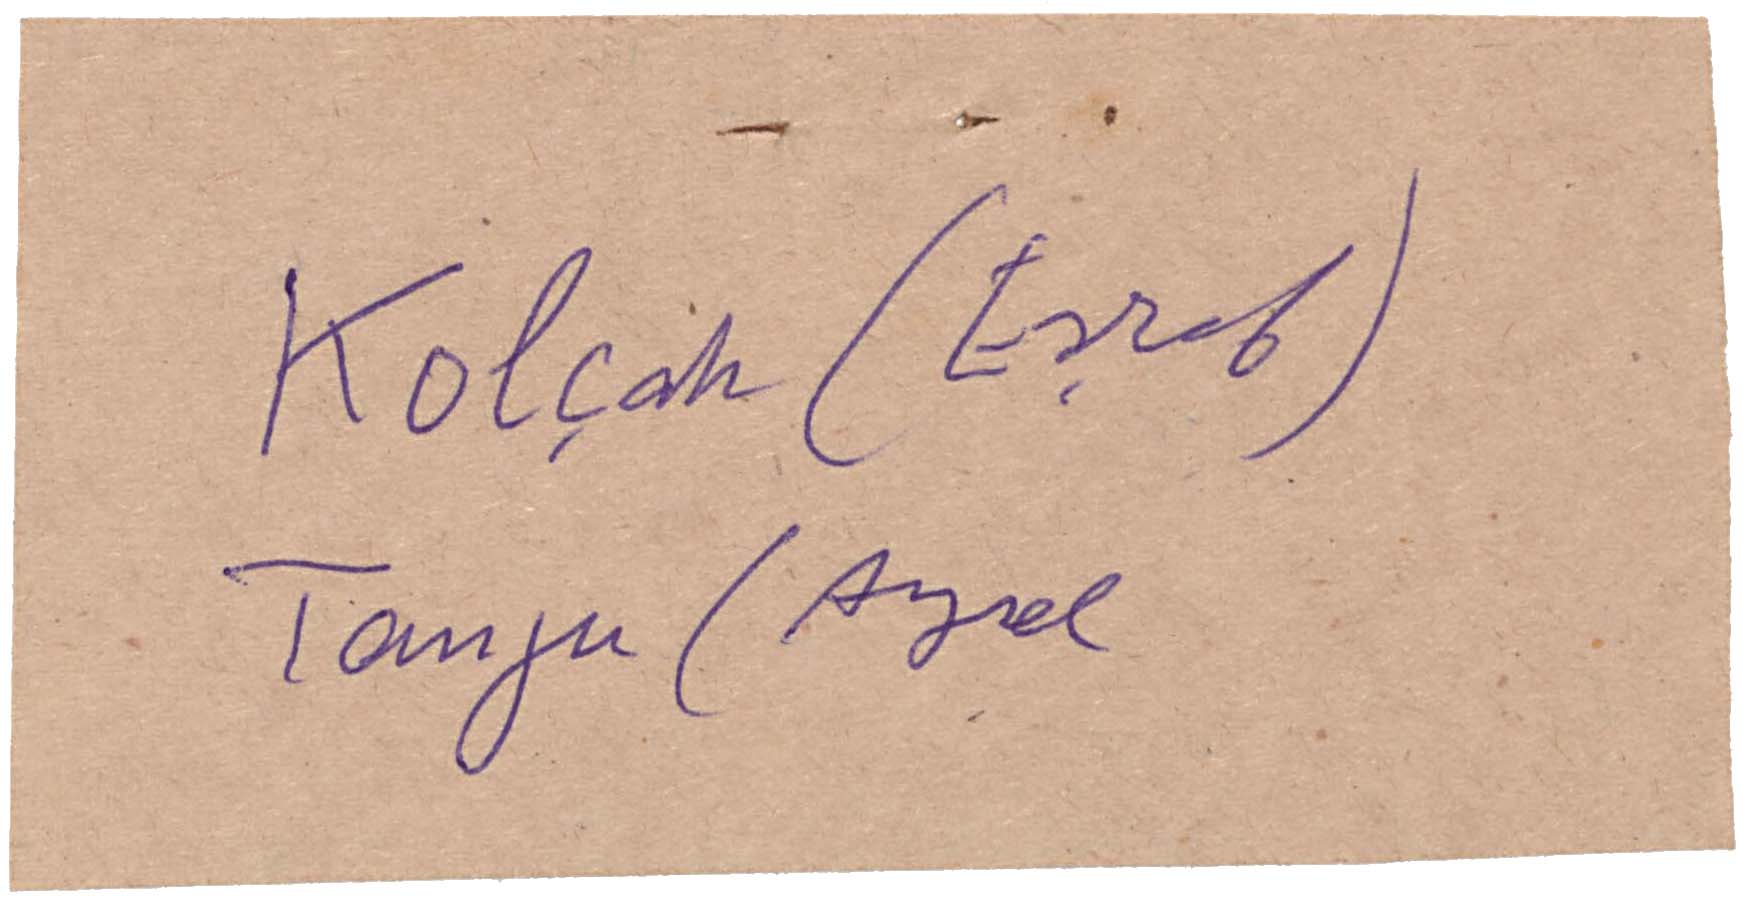 Kolçak (Eşref)
Tanju (Aysel